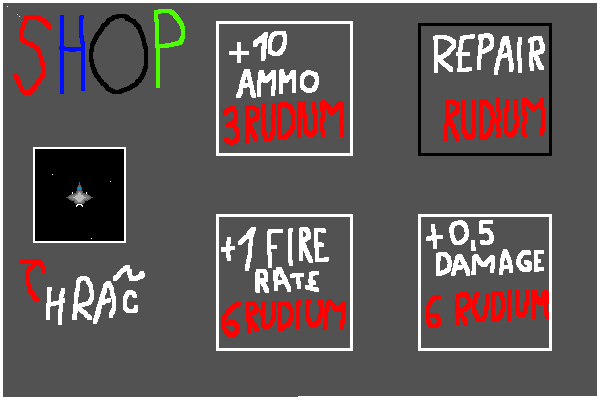 SHOP
+10
AMMO
3 RUDIUM
REPAIR
RUDIUM
HRAČ
+1 FIRE
RATE
6 RUDIUM
+0,5
DAMAGE
6 RUDIUM